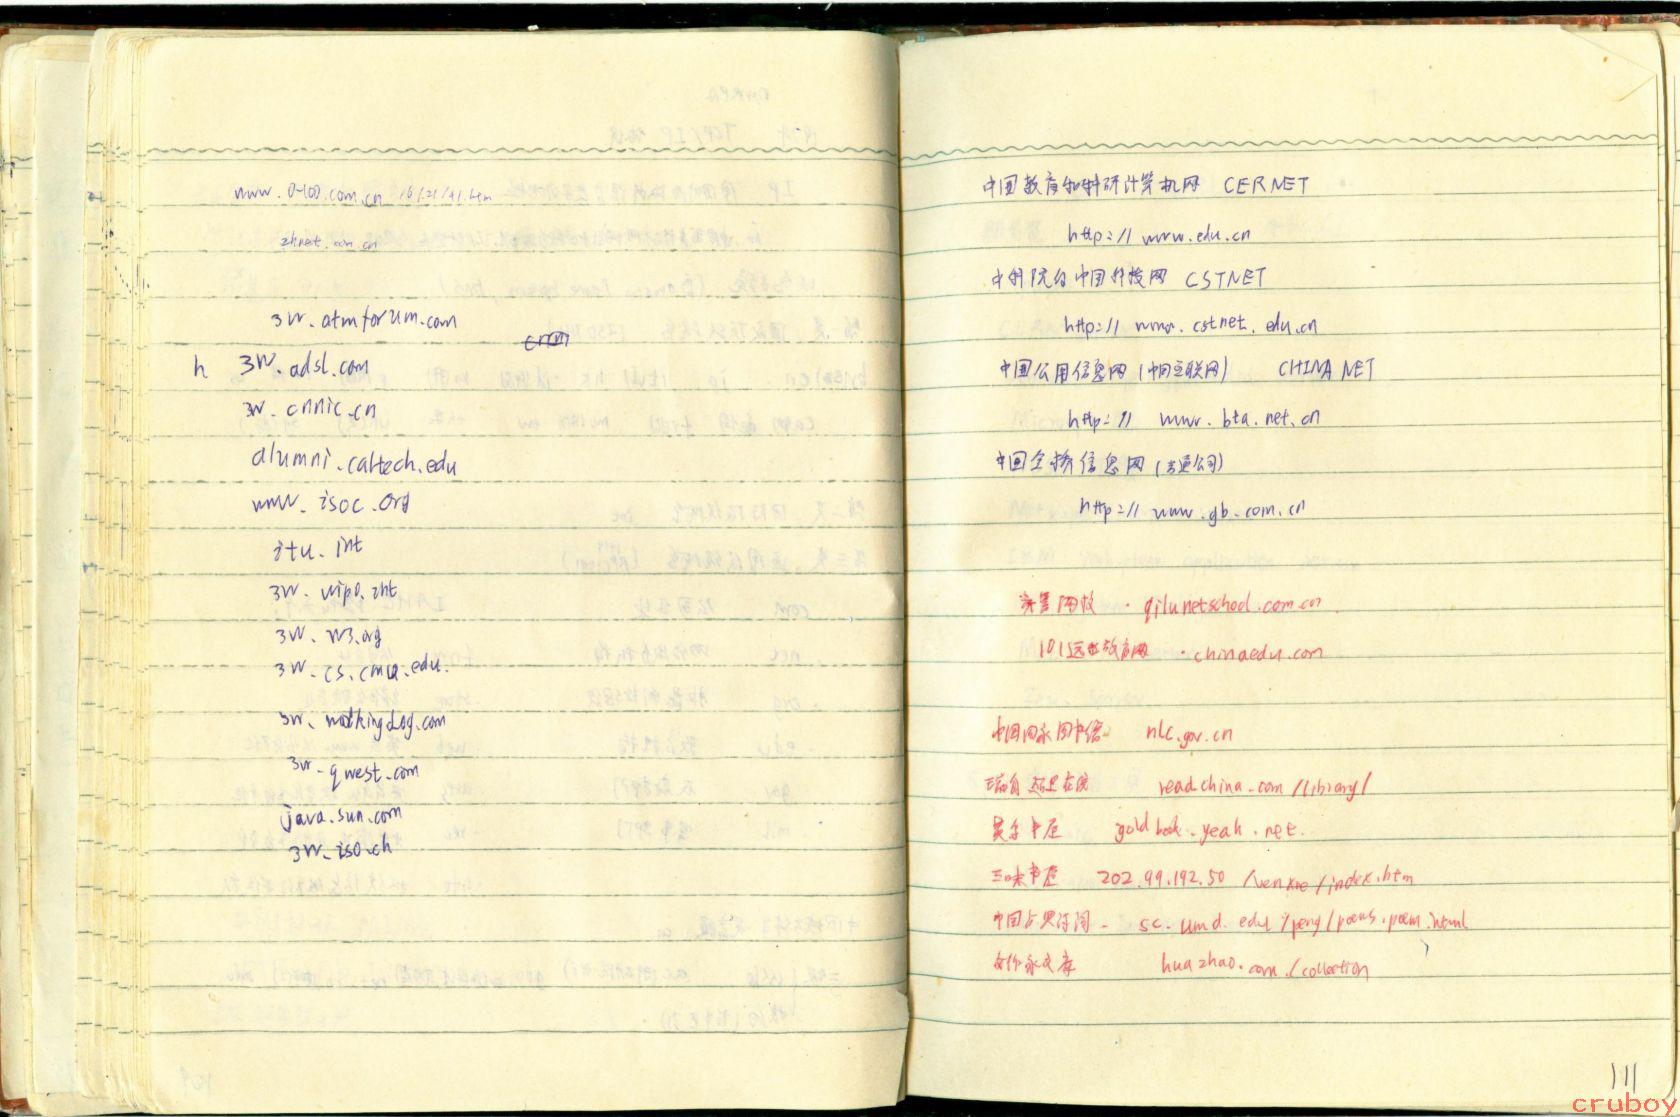 www.0-100.com.cn
zhnet.com.cn
3W.atmforum.com
h 3W.adsl.com
3W.cnnic.cn
alumni.caltech.edu
www.isoc.org
itu.int
3W.wipo.int
3W.W3.org
3W.cs.cmu.edu.
3W.qwest.com
java.sun.com
3W.iso.ch
中国教育和科研计算机网 CERNET
http:// www.edu.cn
中科院的中国科技网 CSTNET
http:// www.cstnet.edu.cn
中国公用信息网(中国互联网) CHINANET
http:// www.bta.net.cn
中国金桥信息网(吉通公司)
http:// www.gb.com.cn
齐鲁网校 . qilunetschool.com.cn
101远程教育网 . chinaedu.com
中国国家图书馆 nlc.gov.cn
readchina.com/library/
黄金书屋 goldbook.yeah.net.
三味书屋 202.99.192.50 /index.htm
中国古典诗词 - sc.umd.edu/peng/poems.poem.html
huazhao.com./collection
111
cruboy